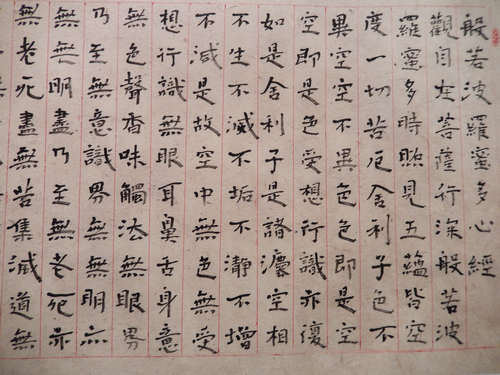 般若波羅蜜多心經
觀自在菩薩行深般若波
羅蜜多時照見五蘊皆空
度一切苦厄舍利子色不
異空空不異色色即是空
空即是色受想行識亦復
如是舍利子是諸灋空相
不生不滅不垢不瀞不增
不減是故空中無色無受
想行識無眼耳鼻舌身意
無色聲香味觸法無眼界
乃至無意識界無無明亦
無無明盡乃至無老死亦
無老死盡無苦集滅道無